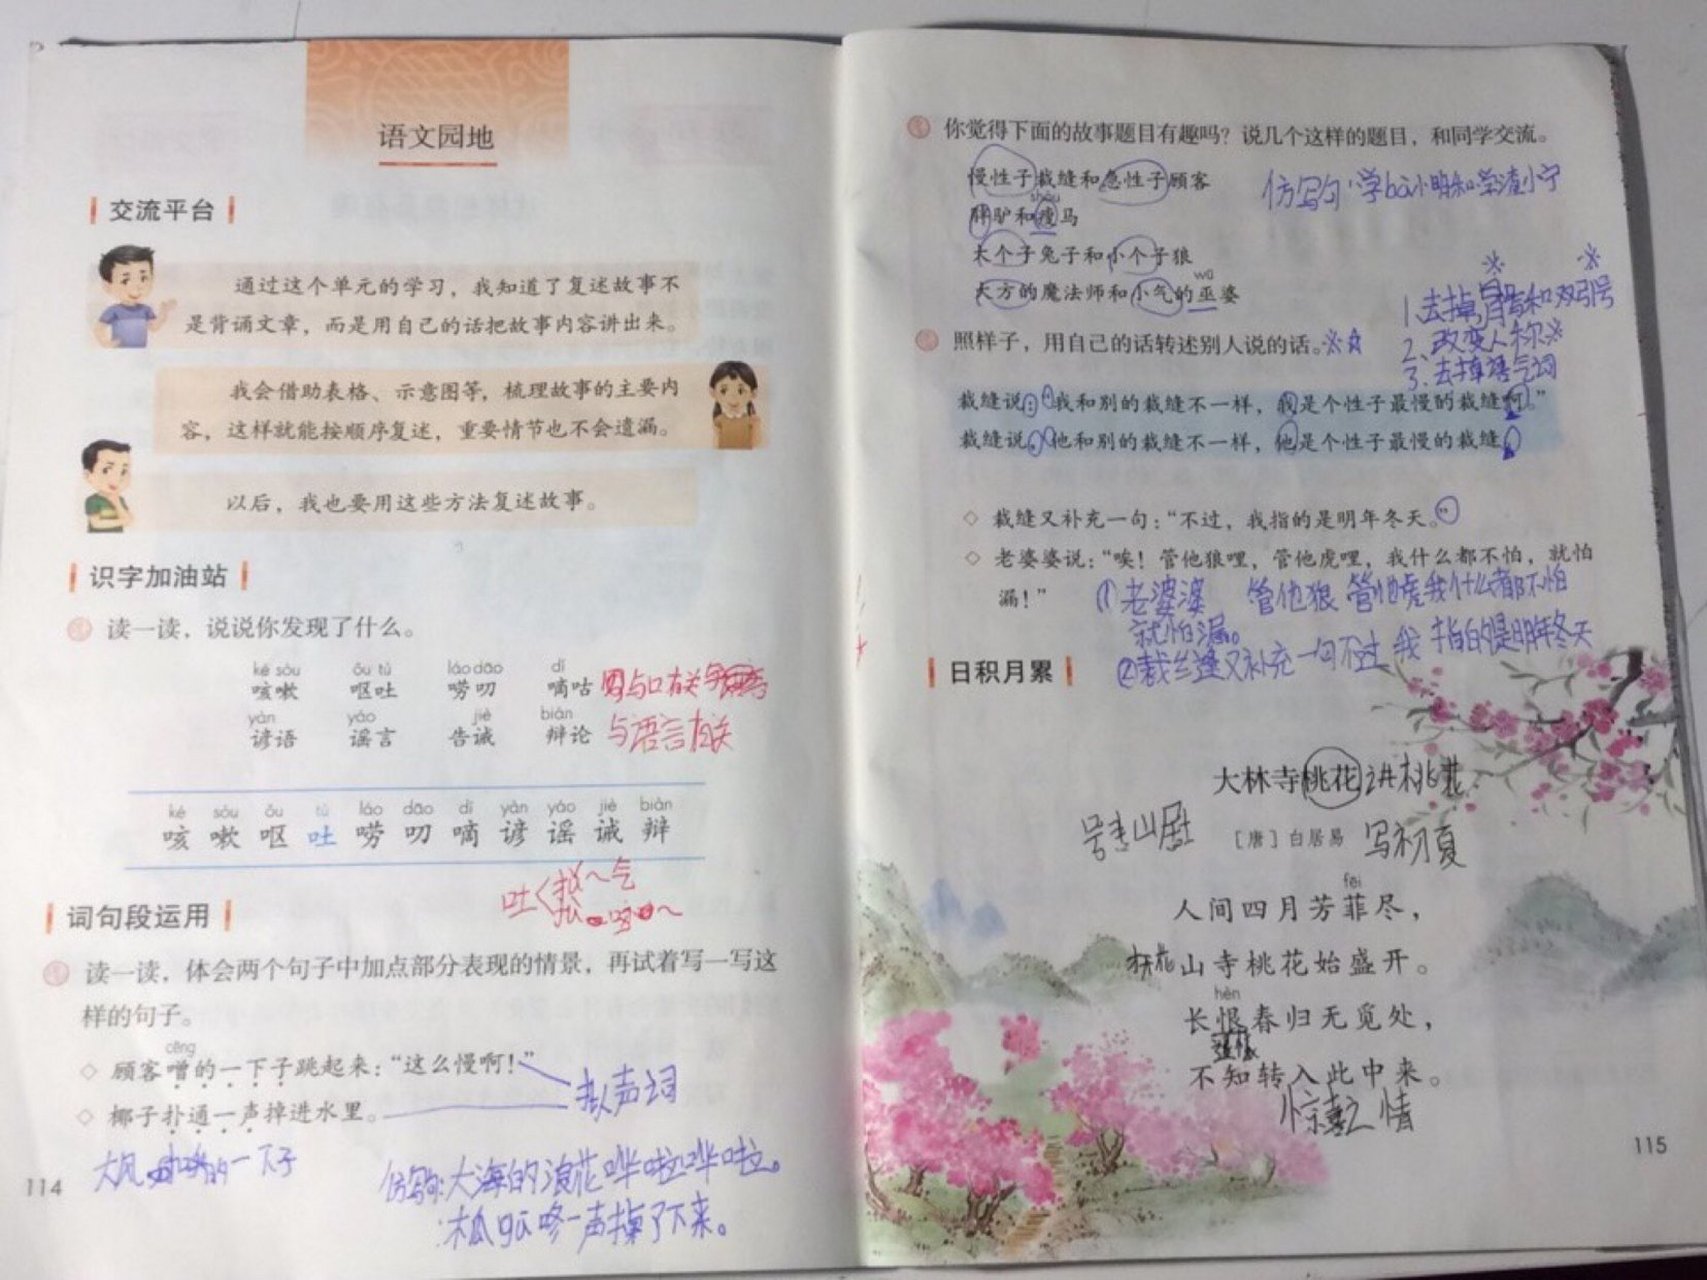 语文园地
交流平台
通过这个单元的学习，我知道了复述故事不
是背诵文章，而是用自己的话把故事内容讲出来。
我会借助表格、示意图等，梳理故事的主要内
容，这样就能按顺序复述，重要情节也不会遗漏。
以后，我也要用这些方法复述故事。
识字加油站
读一读，说说你发现了什么。
ké sòu ǒu tù láo dao dí
咳嗽 呕吐 唠叨 嘀咕 与口有关
yàn yáo jiè biàn
谚语 谣言 告诫 辩论 与语言有关
ké sòu ǒu tù láo dāo dí yàn yáo jiè biàn
咳 嗽 呕 吐 唠 叨 嘀 谚 谣 诫 辩
吐
词句段运用
读一读，体会两个句子中加点部分表现的情景，再试着写一写这
样的句子。
cēng
顾客噌的一下子跳起来：“这么慢啊！”
拟声词
椰子扑通一声掉进水里。
大风 的一下子
仿写句：大海的浪花哗啦哗啦。
木瓜 咚一声掉了下来。
114
你觉得下面的故事题目有趣吗？说几个这样的题目，和同学交流。
慢性子裁缝和急性子顾客
仿写句：学bà小明和学渣小宁
shòu
胖驴和瘦马
大个子兔子和小个子狼
wū
大方的魔法师和小气的巫婆
1、去掉冒号和双引号
2、改变人称
3、去掉语气词
照样子，用自己的话转述别人说的话。
裁缝说：“我和别的裁缝不一样，我是个性子最慢的裁缝啊。”
裁缝说，他和别的裁缝不一样，他是个性子最慢的裁缝。
裁缝又补充一句：“不过，我指的是明年冬天。”
老婆婆说：“唉！管他狼哩，管他虎哩，我什么都不怕，就怕
漏！”
① 老婆婆 管他狼 管他虎我什么都不怕
就怕漏。
②裁缝又补充一句不过 我 指的是明年冬天
日积月累
大林寺桃花 讲桃花
［唐］白居易 写初夏
号 山居
fēi
人间四月芳菲尽，
桃花 山寺桃花始盛开。
hèn
长恨春归无觅处，
遗憾
不知转入此中来。
惊喜之情
115